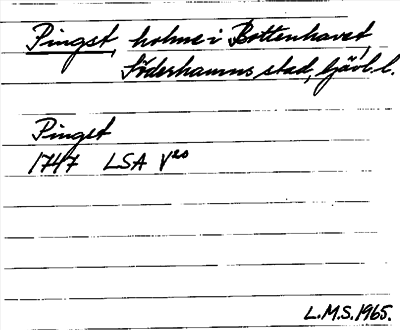 Pingst, holme i Bottenhavet,
Söderhamns stad, Gävl. l.
Pingst
1747 LSA V²⁰
L.M.S. 1965.